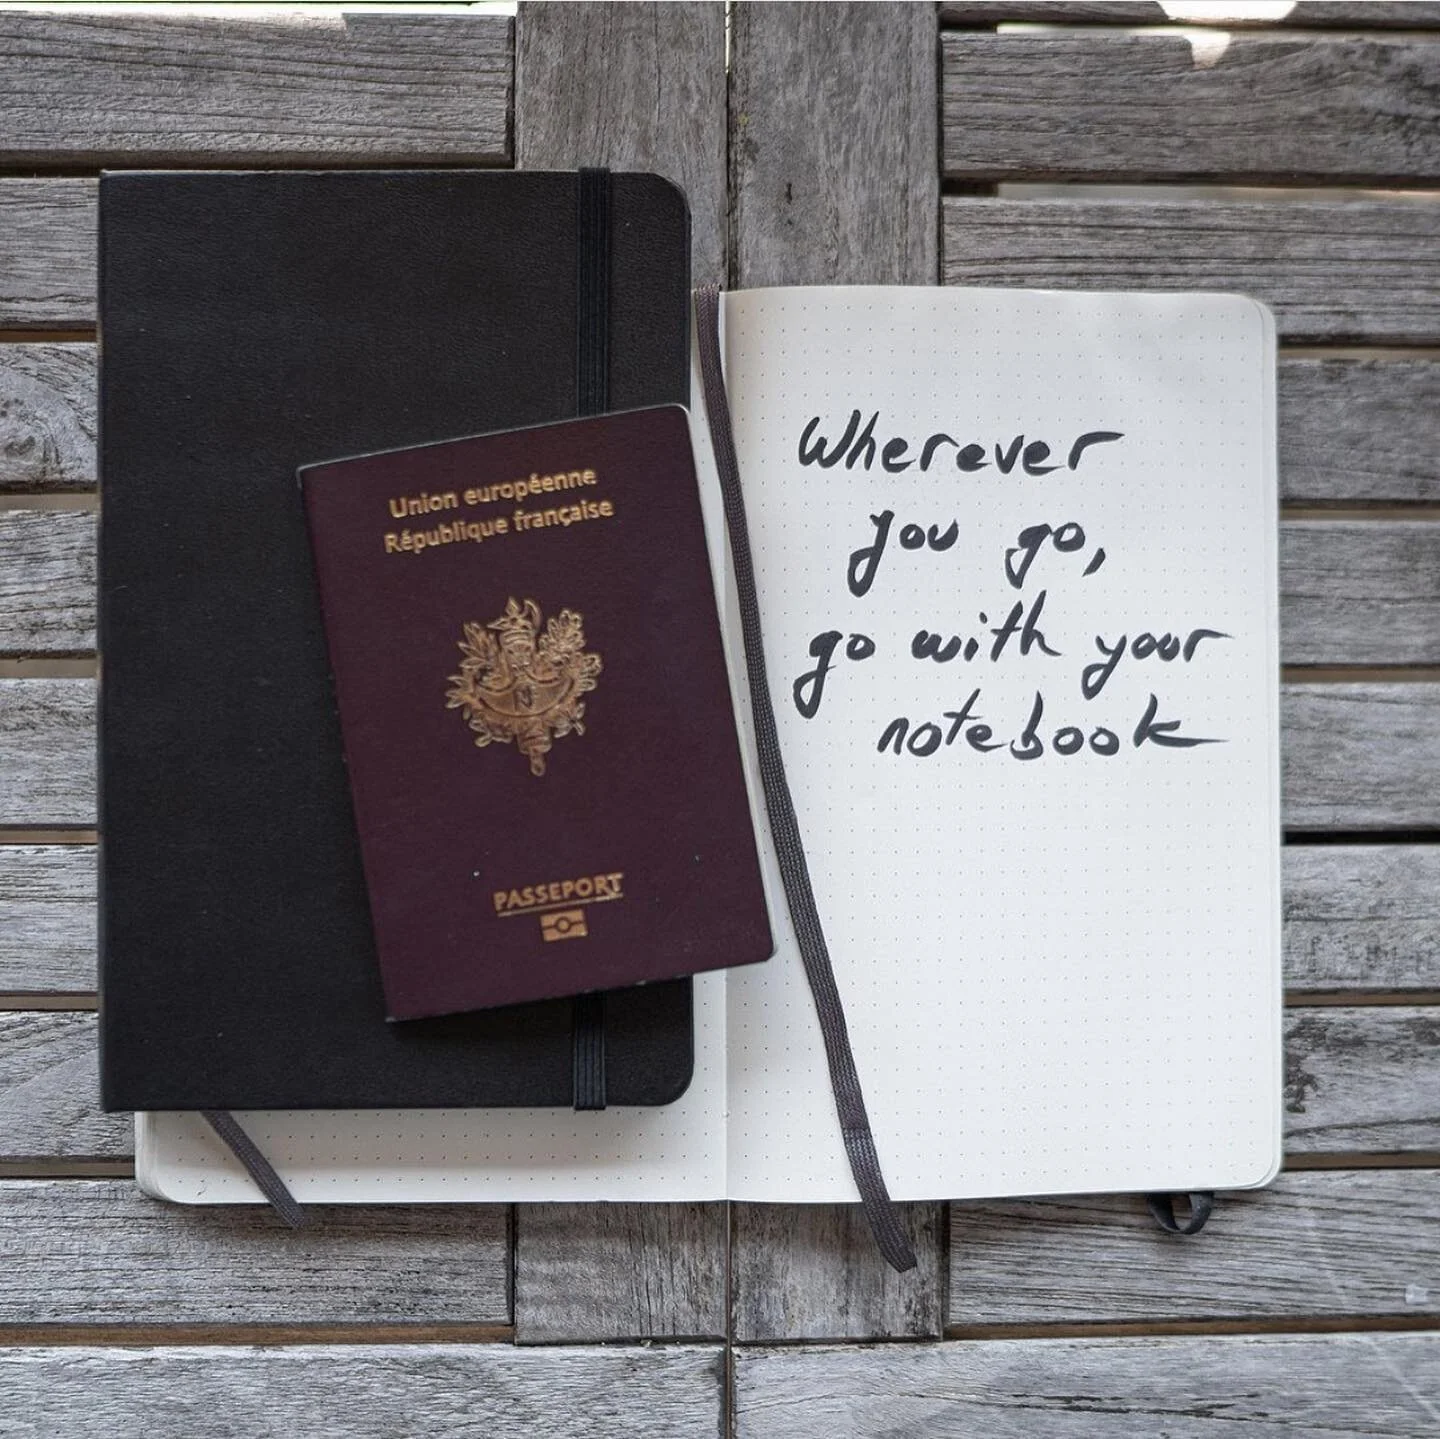 Union européenne
République française
PASSEPORT
Wherever
you go,
go with your
notebook